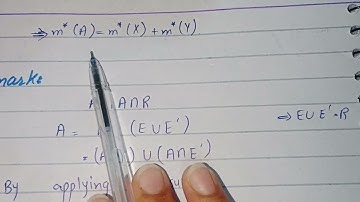 ⇒ m*(A) = m*(X) + m*(Y)
A∩R
A = (E∪E') ⇒ E∪E' = R
= (A ) ∪ (A∩E')
By applying